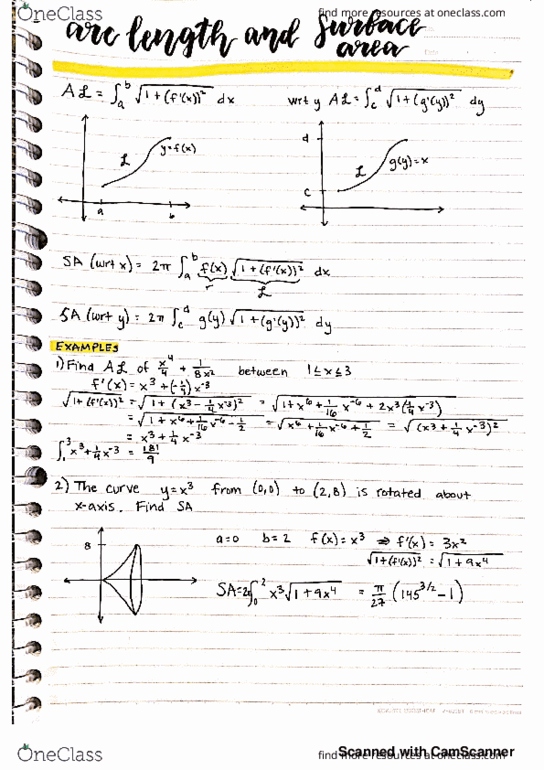 OneClass
find more resources at oneclass.com
arc length and surface area
AL = ∫ₐᵇ √(1+(f'(x))²) dx
wrt y AL = ∫꜀ᵈ √(1+(g'(y))²) dy
L y=f(x)
a b
d
L g(y)=x
c
SA (wrt x) = 2π ∫ₐᵇ f(x) √(1+(f'(x))²) dx
r L
SA (wrt y) = 2π ∫꜀ᵈ g(y) √(1+(g'(y))²) dy
EXAMPLES
1) Find AL of x⁴/4 + 1/8x² between 1≤x≤3
f'(x) = x³ + (-1/4)x⁻³
√(1+(f'(x))²) = √(1+(x³-1/4 x⁻³)²) = √(1+x⁶+1/16 x⁻⁶+2x³(1/4 x⁻³))
= √(1+x⁶+1/16 x⁻⁶-1/2) = √(x⁶+1/16 x⁻⁶+1/2) = √((x³+1/4 x⁻³)²)
= x³+1/4 x⁻³
∫₁³ x³+1/4 x⁻³ = 181/9
2) The curve y=x³ from (0,0) to (2,8) is rotated about
x-axis. Find SA
8
a=0 b=2 f(x)=x³ ⇒ f'(x)=3x²
√(1+(f'(x))²) = √(1+9x⁴)
SA=2π∫₀² x³√(1+9x⁴) = π/27 (145^(3/2) -1)
OneClass
find more resources at oneclass.com
Scanned with CamScanner